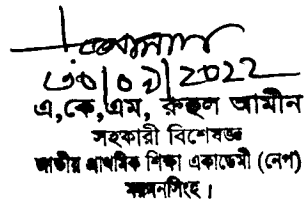 ৩০/০৯/2022
এ,কে,এম, রুহুল আমীন
সহকারী বিশেষজ্ঞ
জাতীয় প্রাথমিক শিক্ষা একাডেমী (নেপ)
ময়মনসিংহ।